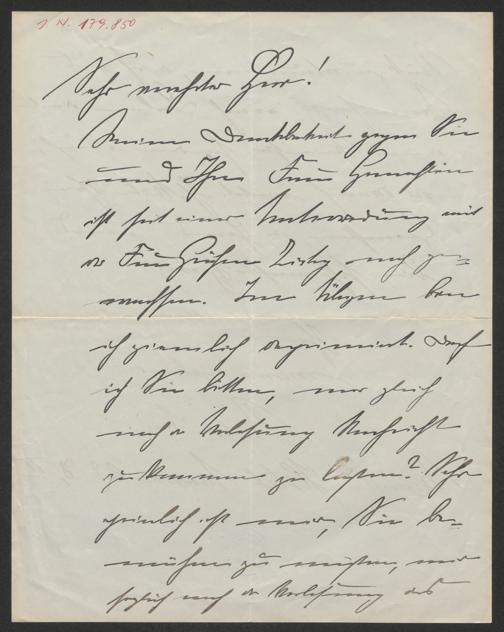 I. N. 179.850
Sehr verehrter Herr!
Meine Dankbarkeit gegen Sie
und Ihre Frau Gemahlin
ist seit einer Unterredung mit
der Frau Gräfin Zichy noch ge-
wachsen. Im Übrigen bin
ich ziemlich deprimirt. Darf
ich Sie bitten, mir gleich
nach der Vorlesung Nachricht
zukommen zu lassen? Sehr
peinlich ist mir, Sie be-
mühen zu müssen, mir
sogleich nach der Vorlesung des